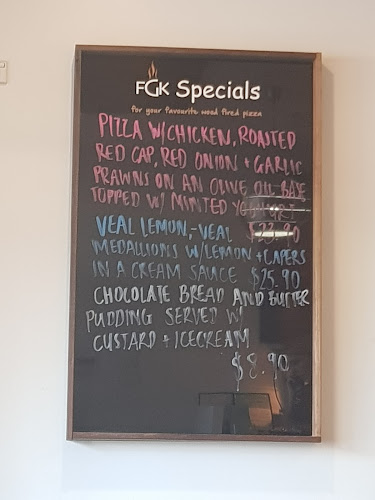 FGK Specials
for your favourite wood fired pizza
PIZZA W/CHICKEN, ROASTED
RED CAP, RED ONION + GARLIC
PRAWNS ON AN OLIVE OIL BASE
TOPPED W/ MINTED YOGHURT
$23.90
VEAL LEMON,-VEAL
MEDALLIONS W/LEMON + CAPERS
IN A CREAM SAUCE $25.90
CHOCOLATE BREAD AND BUTTER
PUDDING SERVED W/
CUSTARD + ICECREAM
$8.90